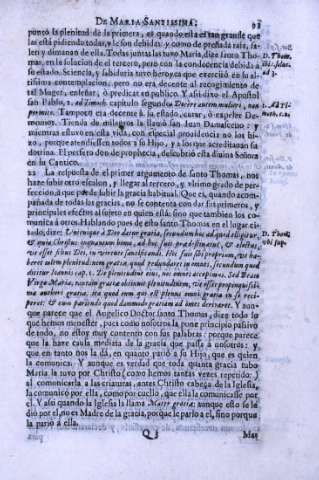 DE MARIA SANTISSIMA. 93
puncto la plenitud de la gracia, es quando ella es tan grande que
las està pidiendo todas, y le son debidas: y como de presta da raiz, sa-
len y dimanan de ella. Todas juntas las tuvo Maria, dize santo Tho-
mas, en la solucion de el tercero, pero con la condecencia debida à
su estado. Sciencia, y sabiduria tuvo heroyca que exercitò en su al-
tissima contemplacion, pero no era decente al recogimiento de
tal Muger, enseñar, ò predicar en publico. Y assi dixo el Apostol
san Pablo, 1. ad Timoth. capitulo segundo: Docere autem mulieri, non
permitto. Tampoco era decente à su estado, curar, ò expeler De-
monios. Tienda de milagros la llamò san Juan Damasceno: y
mientras estuvo en esta vida, con especial prouidencia no los hi-
zo, porque atendiessen todos à su Hijo, y à los que acreditauan sa
dotrina. El postrero don de prophecia, descubriò esta diuina Señora
en su Cantico.
22 La respuesta de el primer argumento de santo Thomas, nos
haze subir otro escalon, y llegar al tercero, y vltimo grado de per-
feccion, à que puede subir la gracia habitual. Que es, quando acom-
pañada de todas las gracias, no se contenta con dar sus primeros, y
principales efectos al sujeto en quien està: sino que tambien los co-
munica à otros. Hablando pues de esto santo Thomas en el lugar ci-
tado, dize: Unicuique à Deo datur gratia, secundum hoc ad quod eligitur,
& quia Christus inquantum homo, ad hoc fuit prædestinatus, & electus,
vt esset filius Dei, in virtute sanctificandi. Hoc fuit sibi proprium, vt ha-
beret talem plenitudinem gratiæ, quod redundaret in omnes, secundum quod
dicitur Ioannis cap. 1. De plenitudine eius, nos omnes accepimus. Sed Beata
Virgo Maria, tantam gratiæ obtinuit plenitudinem, vt esset propinquissi-
ma auctori gratiæ, ita quod eum qui est plenus omni gratia in se reci-
peret: & eum pariendo quod dammodo gratiam ad omes derivaret. Y aun-
que parece que el Angelico Doctor santo Thomas, dize todo lo
que hemos menester, pues como nosotros la pone principio passivo
de todo, no estoy muy contento con sus palabras: porque parece
que la haze causa mediata de la gracia que passa à nosotros; y
que en tanto nos la dà, en quanto pariò a su Hijo, que es quien
la comunica. Y aunque es verdad que toda quanta gracia tubo
Maria la tuvo por Christo (como hemos tantas vezes repetido:)
al comunicarla a las criaturas, antes Christo cabeça de la Iglesia,
la comunicò por ella, como por cuello, que ella la comunicasse por
el. Y assi quando la Iglesia la llama Mater gratiæ; aunque esto se le
diò por el, no es Madre de la gracia, porque le pariò a el, sino porque
la pariò à ella.
Q Mas
D. Thom.
ad 3.
D. Thom.
ubi sup.